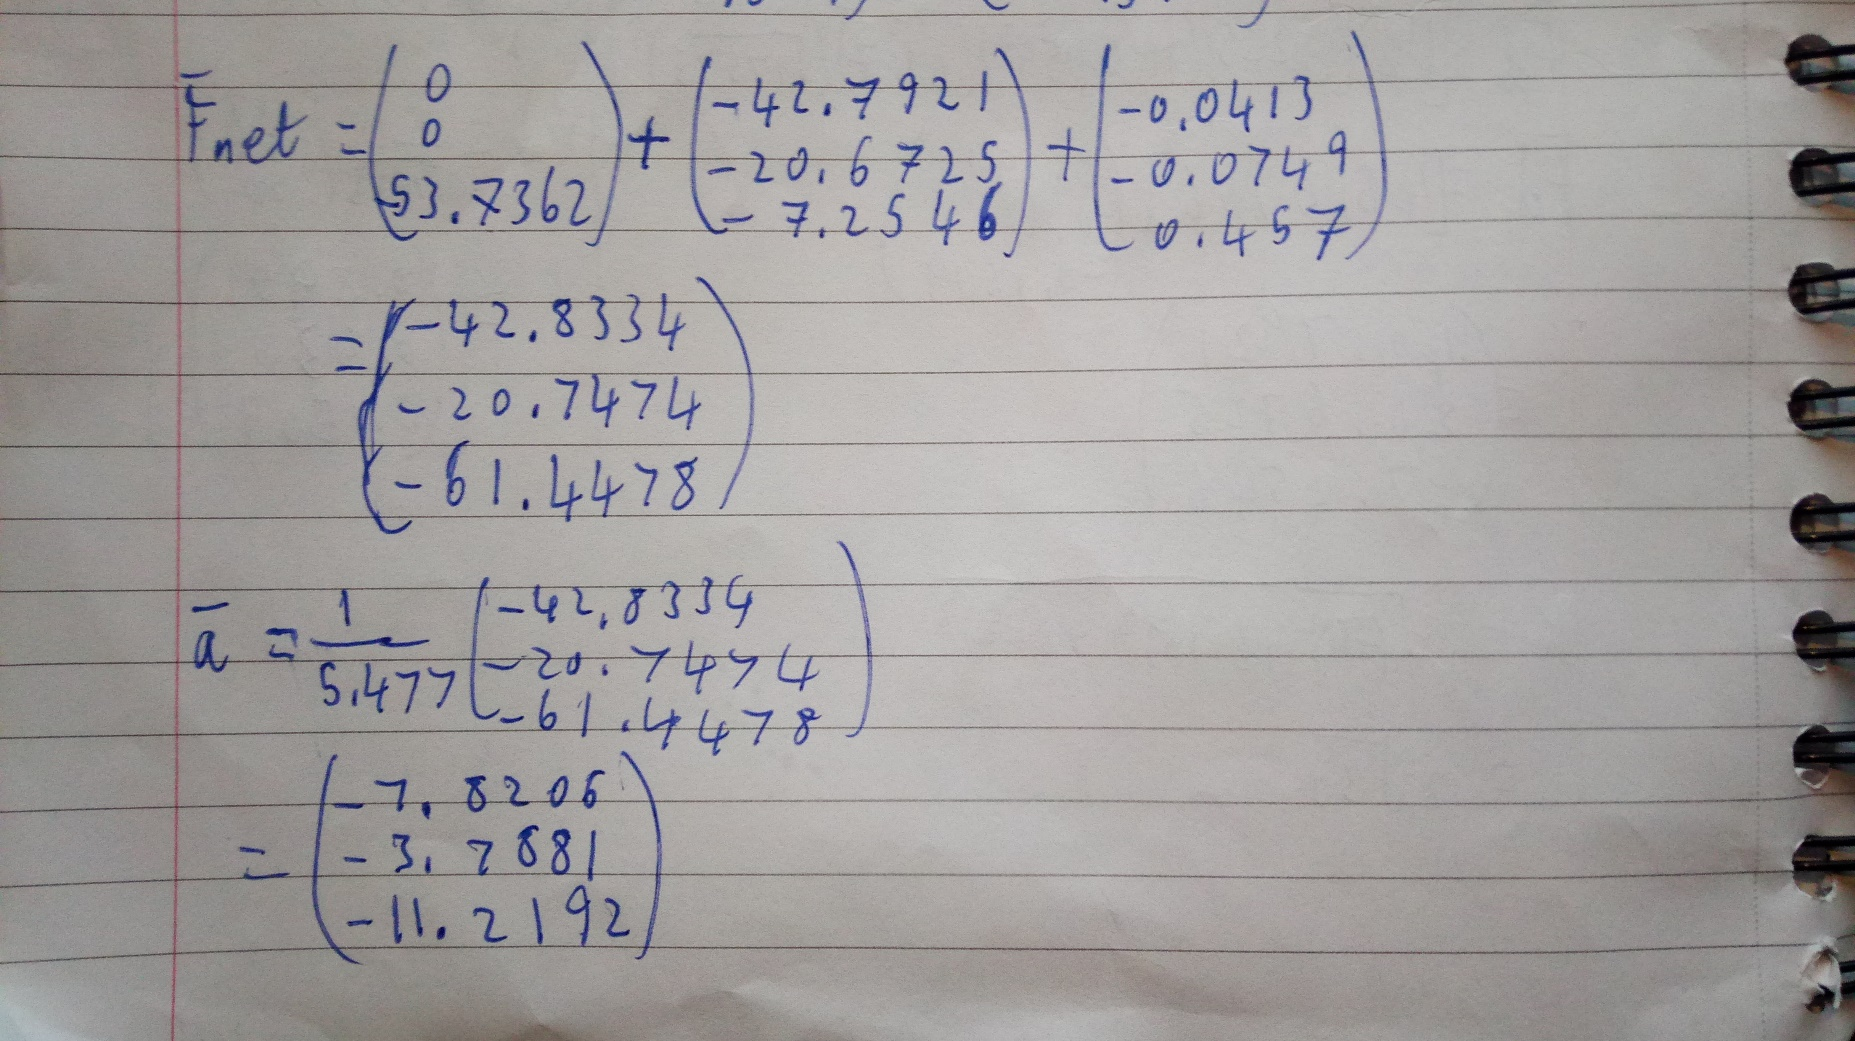 F̄net = (0 0 -53.7362) + (-42.7921 -20.6725 -7.2546) + (-0.0413 -0.0749 0.457)
= (-42.8334 -20.7474 -61.4478)
ā = 1/5.477 (-42.8334 -20.7474 -61.4478)
= (-7.8206 -3.7881 -11.2192)